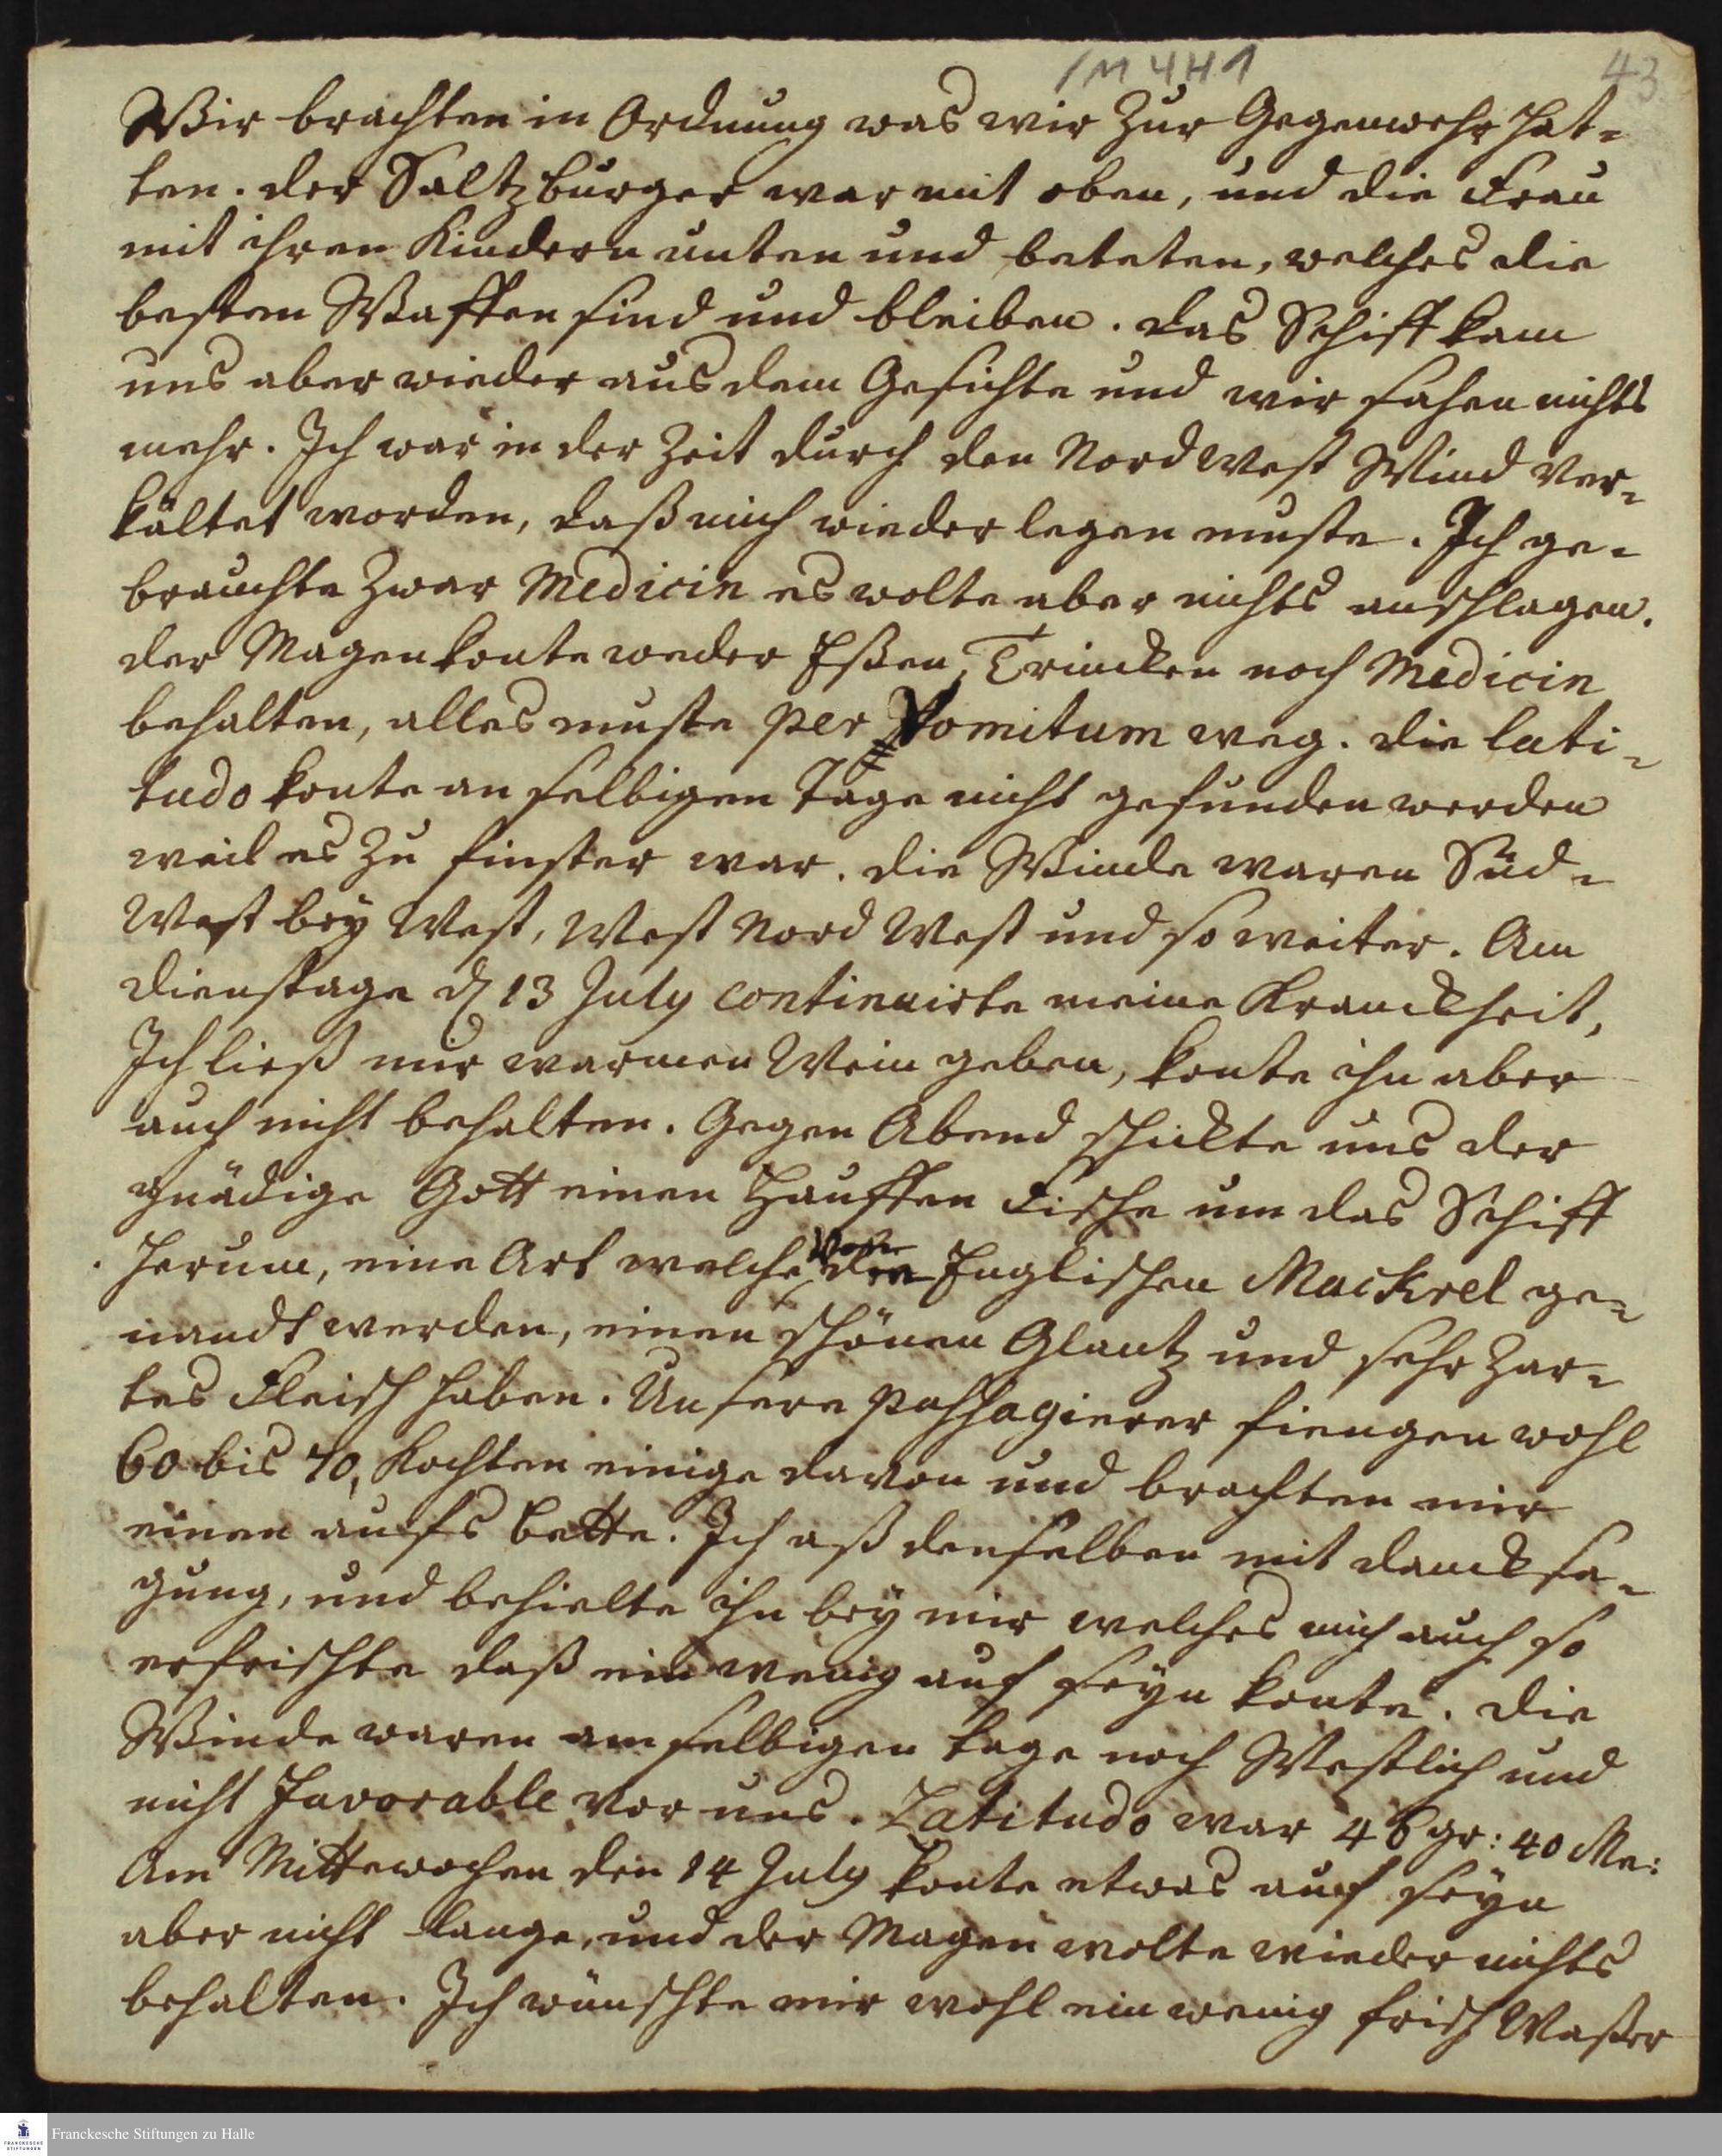 1M 4H1
43
Wir brachten in Ordnung was wir zur Gegenwehr hat-
ten. der Saltzburger war mit oben, und die Frau
mit ihren Kindern unten und beteten, welches die
besten Waffen sind und bleiben. das Schiff kam
uns aber wieder aus dem Gesichte und wir sahen nichts
mehr. Ich war in der Zeit durch den Nord West Wind ver-
kältet worden, daß mich wieder legen muste. Ich ge-
brauchte zwar Medicin es wolte aber nichts anschlagen.
der Magen konte weder Eßen, Trincken noch Medicin
behalten, alles muste per Vomitum weg. die lati-
tudo konte an selbigen Tage nicht gefunden werden
weil es zu finster war. die Winde waren Süd-
West bey West, West Nord West und so weiter. Am
dienstage d 13 July continuirte meine Kranckheit,
Ich ließ mir warmen Wein geben, konte ihn aber
auch nicht behalten. Gegen Abend schickte uns der
gnädige Gott einen Hauffen Fische um das Schiff
herum, eine Art welche von den Englischen Mackrel ge-
nandt werden, einen schönen Glantz und sehr zar-
tes Fleisch haben. Unsere Passagierer fiengen wohl
60 bis 70, kochten einige davon und brachten mir
einen aufs bette. Ich aß denselben mit dancksa-
gung, und behielte ihn bey mir welches mich auch so
erfrischte daß ein wenig auf seyn konte. die
Winde waren am selbigen tage noch Westlich und
nicht favorable vor uns. Latitudo war 46 gr: 40 Me:
Am Mittewochen den 14 July konte etwas auf seyn
aber nicht lange, und der Magen wolte wieder nichts
behalten. Ich wünschte mir wohl ein wenig frisch Waßer
Franckesche Stiftungen zu Halle